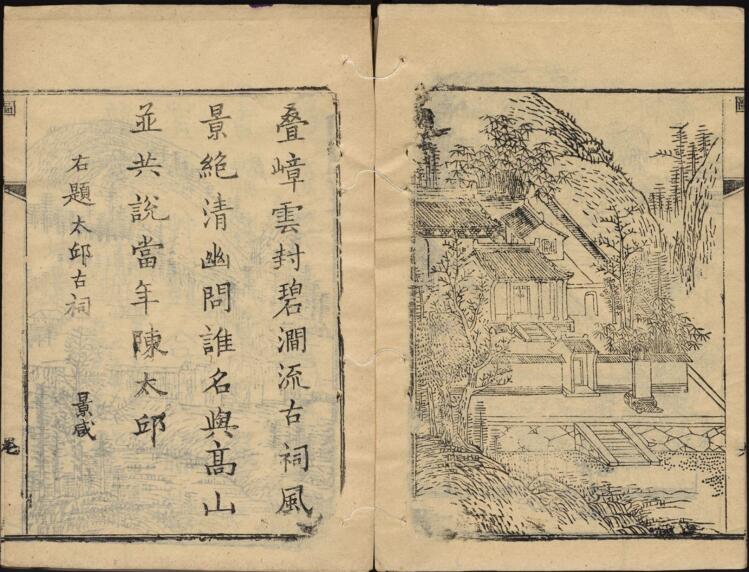 叠嶂雲封碧澗流古祠風
景絶清幽問誰名與髙山
並共說當年陳太邱
右題太邱古祠
景咸
圖
卷